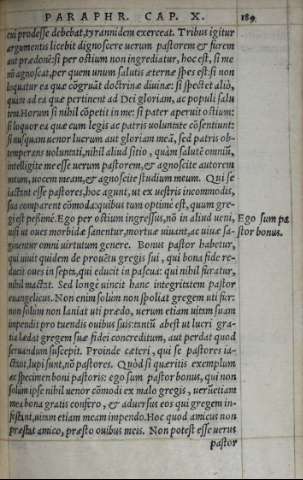 PARAPHR. CAP. X. 189
cui prodesse debebat, tyrannidem exerceat. Tribus igitur
argumentis licebit dignoscere uerum pastorem & furem
aut prædonẽ: si per ostium non ingrediatur, hoc est, si me
nõ agnoscat, per quem unum salutis æternæ spes est: si non
loquatur ea quæ cõgruãt doctrinæ diuinæ: si spectet aliò,
quàm ad ea quæ pertinent ad Dei gloriam, ac populi salu
tem. Horum si nihil cõpetit in me: si pater aperuit ostium:
si loquor ea quæ cum legis ac patris uoluntate cõsentiunt:
si nusquam uenor lucrum aut gloriam meã, sed patris ob-
temperans uoluntati, nihil aliud sitio, quàm salutẽ omniũ,
intelligite me esse uerum pastorem, & agnoscite autorem
meum, uocem meam, & agnoscite studium meum. Qui se
iactant esse pastores, hoc agunt, ut ex uestris incommodis,
sua comparent cõmoda: quibus tum optimè est, quum gre-
gi est pessimè. Ego per ostium ingressus, nõ in aliud ueni,
nisi ut oues morbidæ sanentur, mortuæ uiuant, ac uiuæ sa-
ginentur omni uirtutum genere. Bonus pastor habetur,
qui uiuit quidem de prouẽtu gregis sui, qui bona fide re-
ducit oues in septa, qui educit in pascua: qui nihil furatur,
nihil mactat. Sed longe uincit hanc integritatem pastor
euangelicus. Non enim solùm non spoliat gregem uti fur:
non solùm non laniat uti prædo, uerum etiam uitam suam
impendit pro tuendis ouibus suis: tantũ abest ut lucri gra-
tia lædat gregem suæ fidei concreditum, aut perdat quod
seruandum suscepit. Proinde cæteri, qui se pastores ia-
ctant, lupi sunt, nõ pastores. Quòd si quæritis exemplum
ac specimen boni pastoris: ego sum pastor bonus, qui non
solùm ipse nihil uenor cõmodi ex malo gregis, uerũetiam
mea bona gratis confero, & aduersus eos qui gregem in-
festant, uitam etiam meam impendo. Hoc quod amicus non
præstat amico, præsto ouibus meis. Non potest esse uerus
pastor
Ego sum pa
stor bonus.